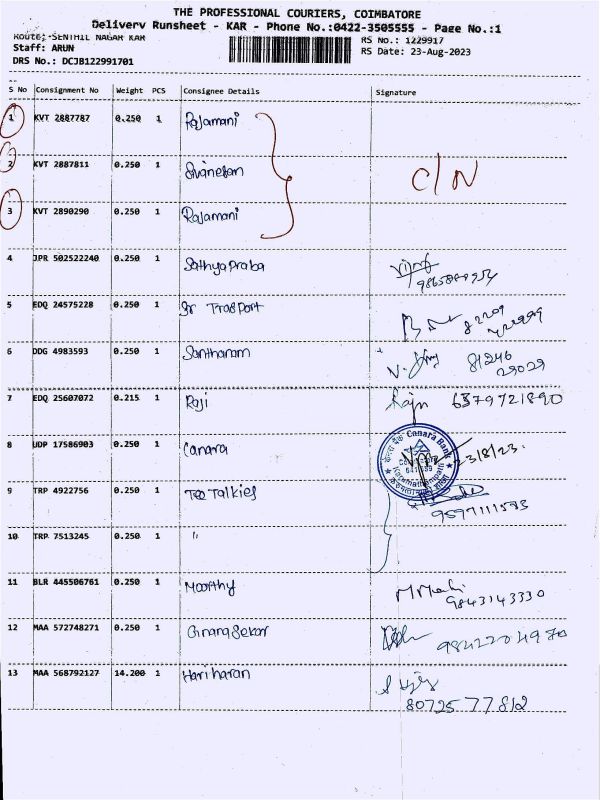 THE PROFESSIONAL COURIERS, COIMBATORE
Delivery Runsheet - KAR - Phone No.:0422-3505555 - Page No.:1
Route: SENTHIL NAGAR KAR
RS No.: 1229917
Staff: ARUN
RS Date: 23-Aug-2023
DRS No.: DCJB122991701
S No Consignment No Weight PCS Consignee Details Signature
1 KVT 2887787 0.250 1 Rajamani
2 KVT 2887811 0.250 1 Sivanesan
C/N
3 KVT 2890290 0.250 1 Rajamani
4 JPR 502522240 0.250 1 Sathya praba
5 EDQ 24575228 0.250 1 Sr Trasport
6 DDG 4983593 0.250 1 Santharam
81246
29029
7 EDQ 25607072 0.215 1 Raji Raju 6379721890
8 UDP 17586903 0.250 1 Canara 23/8/23.
Canara Bank
9 TRP 4922756 0.250 1 Tea Talkies
9597111583
10 TRP 7513245 0.250 1 "
11 BLR 445506761 0.250 1 Moorthy
9843143330
12 MAA 572748271 0.250 1 Gnanasekar 9842204970
13 MAA 568792127 14.200 1 Hari haran
8072577812